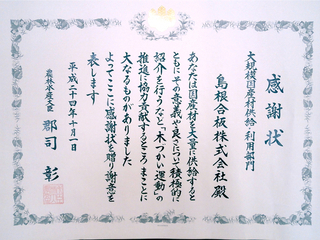 感謝状
大規模国産材供給・利用部門
島根合板株式会社殿
あなたは国産材を大量に供給すると
ともにその意義や良さについて積極的に
紹介を行うなど「木づかい運動」の
推進に協力貢献するところまことに
大なるものがありました
よってここに感謝状を贈り謝意を
表します
平成二十四年十月一日
農林水産大臣
郡司彰